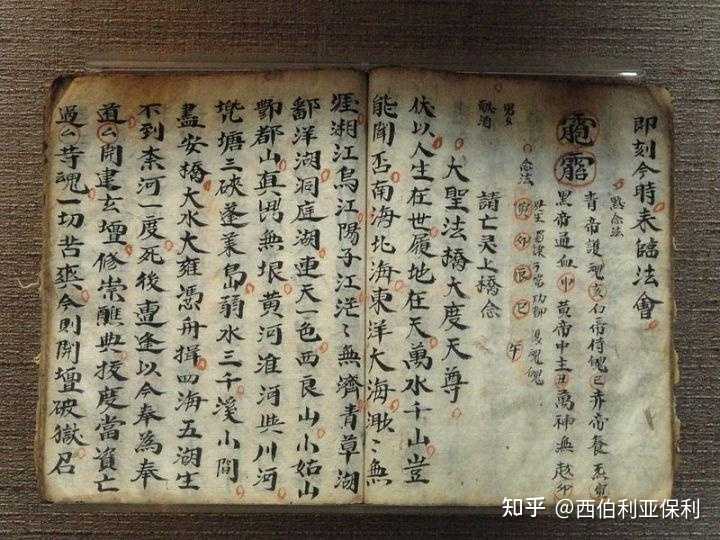 即刻今時來臨法會
默念法
青帝護魂亥白帝侍魄巳赤帝養炁
黑帝通血卯黃帝中主丑萬神無越卯
念法
寅卯辰巳午
男女
請亡灵上橋念
大聖法橋大度天尊
伏以人生在世履地在天萬水千山豈
能聞否南海北海東洋大海渺々無
涯湘江烏江陽子江茫々無濟青草湖
鄱洋湖洞庭湖連天一色西良山小姑山
酆都山真無垠黃河淮河些川河
塘三硤蓬萊島弱水三千溪小澗
盡安橋大水大雍憑舟揖四海五湖生
不到柰河一度死後遭逢以今奉為奉
道么開建玄壇修崇醮典拔度當資亡
過么等魂一切苦爽今則開壇破獄召
知乎 @西伯利亚保利